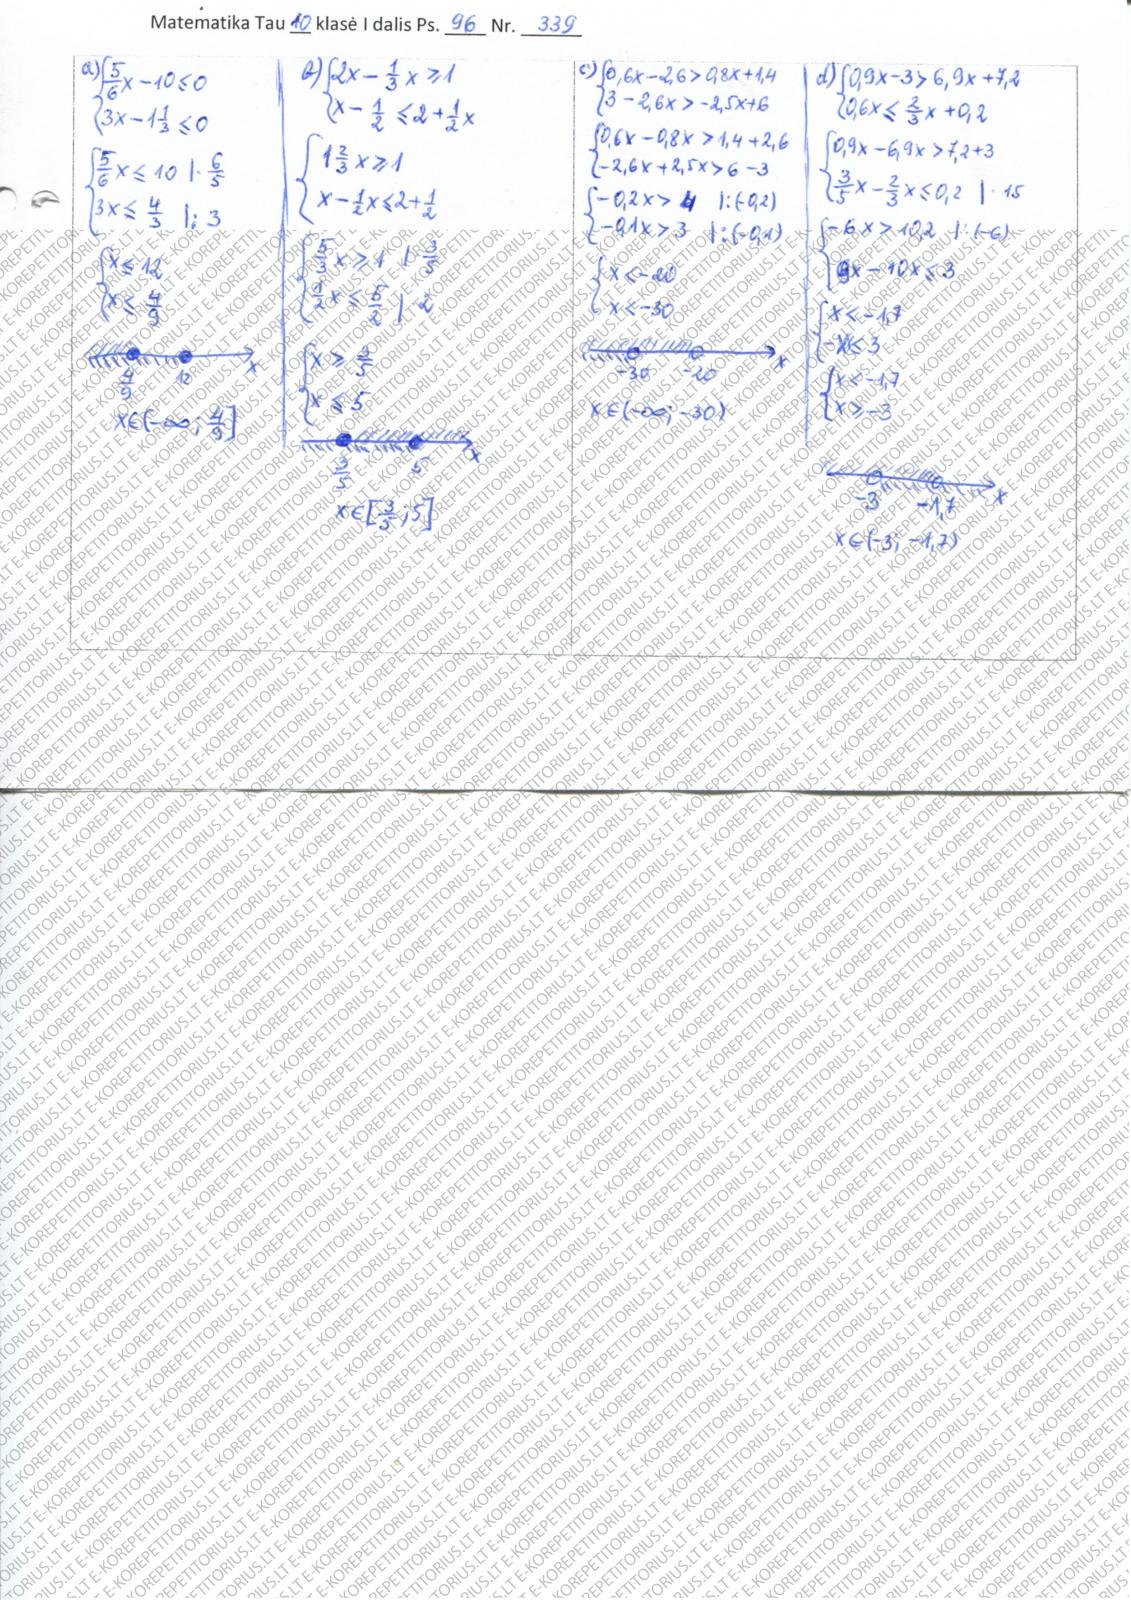 Matematika Tau 10 klasė I dalis Ps. 96 Nr. 339
a) { 5/6 x - 10 ≤ 0
3x - 1 1/3 ≤ 0
{ 5/6 x ≤ 10 | · 6/5
3x ≤ 4/3 | : 3
{ x ≤ 12
x ≤ 4/9
4/9 12 x
x ∈ (-∞; 4/9]
b) { 2x - 1/3 x ≥ 1
x - 1/2 ≤ 2 + 1/2 x
{ 1 2/3 x ≥ 1
x - 1/2 x ≤ 2 + 1/2
{ 5/3 x ≥ 1 | · 3/5
1/2 x ≤ 5/2 | · 2
{ x ≥ 3/5
x ≤ 5
3/5 5 x
x ∈ [3/5; 5]
c) { 0,6x - 2,6 > 0,8x + 1,4
3 - 2,6x > -2,5x + 6
{ 0,6x - 0,8x > 1,4 + 2,6
-2,6x + 2,5x > 6 - 3
{ -0,2x > 4 | : (-0,2)
-0,1x > 3 | : (-0,1)
{ x < -20
x < -30
-30 -20 x
x ∈ (-∞; -30)
d) { 0,9x - 3 > 6,9x + 7,2
0,6x ≤ 2/3 x + 0,2
{ 0,9x - 6,9x > 7,2 + 3
3/5 x - 2/3 x ≤ 0,2 | · 15
{ -6x > 10,2 | : (-6)
9x - 10x ≤ 3
{ x < -1,7
-x ≤ 3
{ x < -1,7
x > -3
-3 -1,7 x
x ∈ (-3; -1,7)
E-KOREPETITORIUS.LT